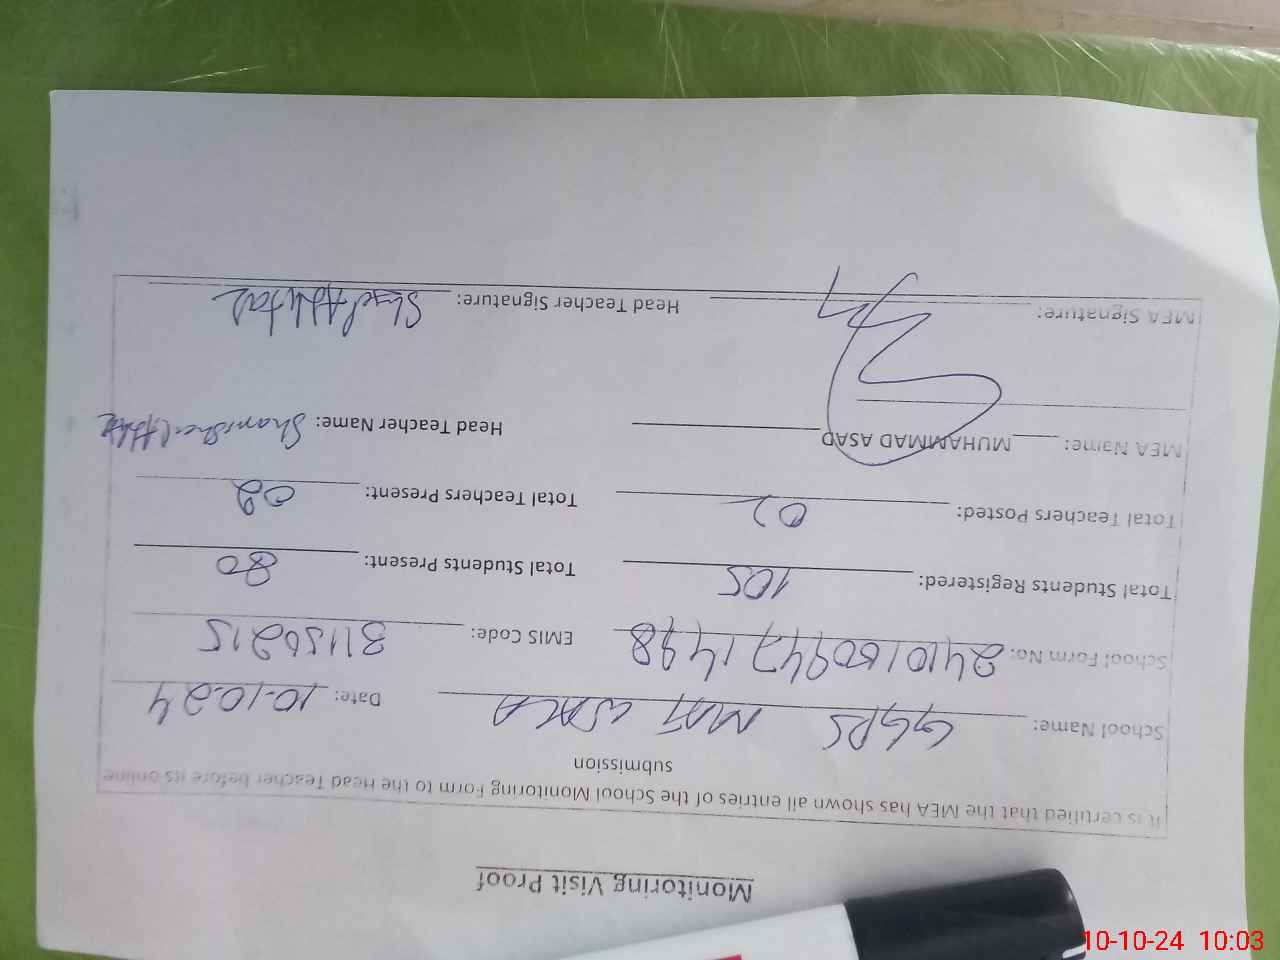 Monitoring Visit Proof
It is certified that the MEA has shown all entries of the School Monitoring Form to the Head Teacher before its online
submission
School Name: GGPS Date: 10.10.24
School Form No: EMIS Code: 31150215
Total Students Registered: 105 Total Students Present: 80
Total Teachers Posted: 02 Total Teachers Present: 02
MEA Name: MUHAMMAD ASAD Head Teacher Name:
MEA Signature: Head Teacher Signature:
10-10-24 10:03